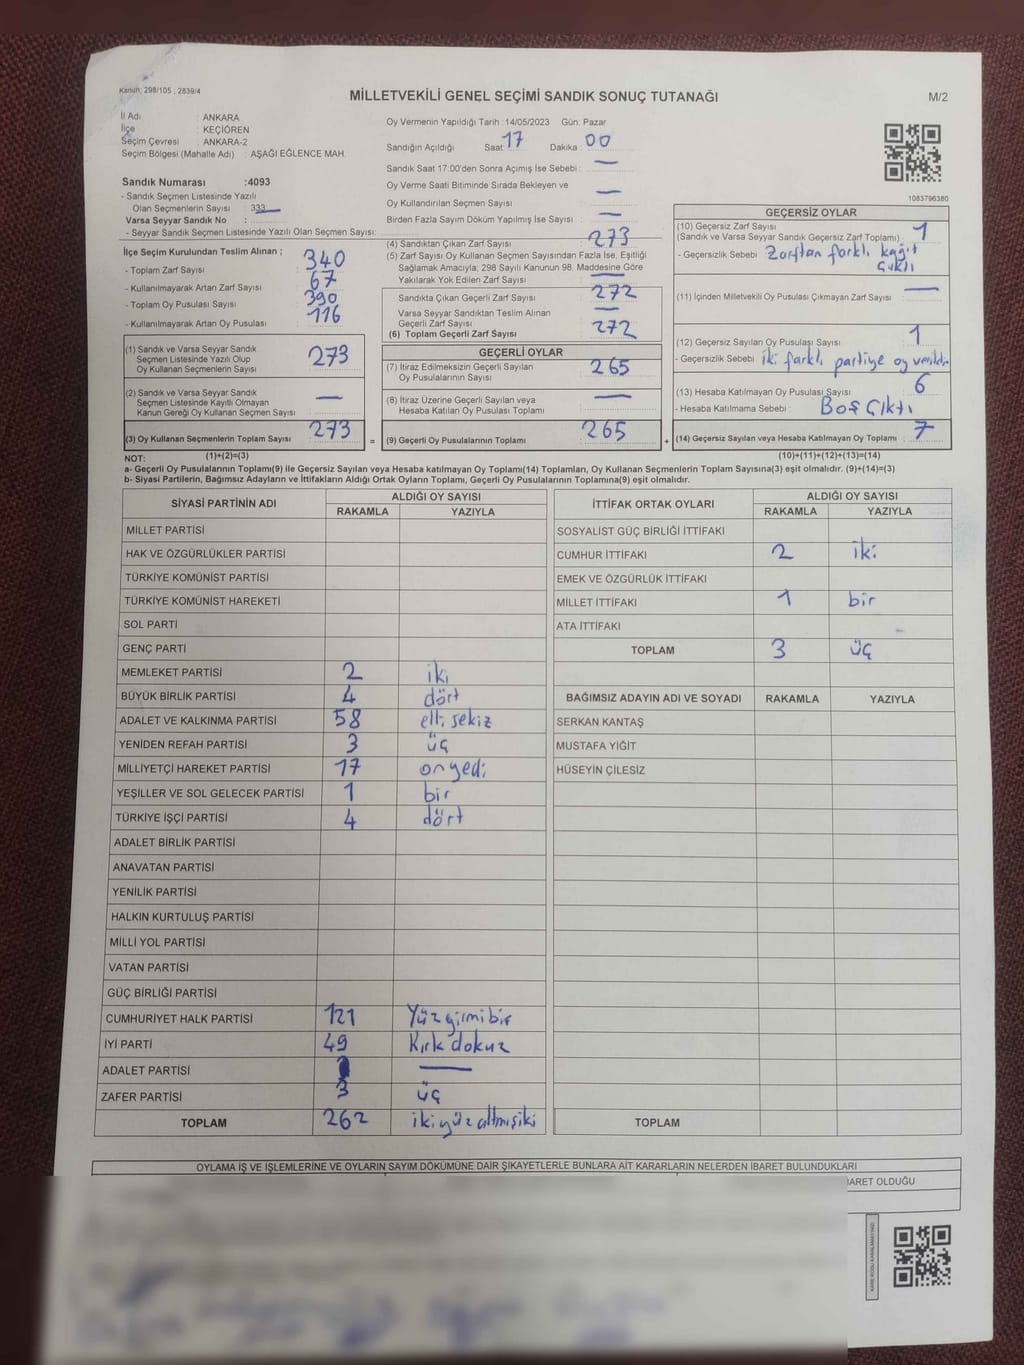 Kanun; 298/105 , 2839/4
MİLLETVEKİLİ GENEL SEÇİMİ SANDIK SONUÇ TUTANAĞI
M/2
İl Adı : ANKARA
İlçe : KEÇİÖREN
Seçim Çevresi : ANKARA-2
Seçim Bölgesi (Mahalle Adı) : AŞAĞI EĞLENCE MAH.
Oy Vermenin Yapıldığı Tarih :14/05/2023 Gün: Pazar
Sandığın Açıldığı Saat: 17 Dakika : 00
Sandık Saat 17:00'den Sonra Açımış İse Sebebi : —
Oy Verme Saati Bitiminde Sırada Bekleyen ve
Oy Kullandırılan Seçmen Sayısı : —
Birden Fazla Sayım Döküm Yapılmış İse Sayısı : —
Sandık Numarası :4093
- Sandık Seçmen Listesinde Yazılı
Olan Seçmenlerin Sayısı : 333
Varsa Seyyar Sandık No :
- Seyyar Sandık Seçmen Listesinde Yazılı Olan Seçmen Sayısı:
İlçe Seçim Kurulundan Teslim Alınan ;
- Toplam Zarf Sayısı : 340
- Kullanılmayarak Artan Zarf Sayısı : 67
- Toplam Oy Pusulası Sayısı : 390
- Kullanılmayarak Artan Oy Pusulası : 116
(1) Sandık ve Varsa Seyyar Sandık
Seçmen Listesinde Yazılı Olup
Oy Kullanan Seçmenlerin Sayısı : 273
(2) Sandık ve Varsa Seyyar Sandık
Seçmen Listesinde Kayıtlı Olmayan
Kanun Gereği Oy Kullanan Seçmen Sayısı : —
(3) Oy Kullanan Seçmenlerin Toplam Sayısı : 273
(4) Sandıktan Çıkan Zarf Sayısı : 273
(5) Zarf Sayısı Oy Kullanan Seçmen Sayısından Fazla İse, Eşitliği
Sağlamak Amacıyla; 298 Sayılı Kanunun 98. Maddesine Göre
Yakılarak Yok Edilen Zarf Sayısı : —
Sandıkta Çıkan Geçerli Zarf Sayısı : 272
Varsa Seyyar Sandıktan Teslim Alınan
Geçerli Zarf Sayısı : —
(6) Toplam Geçerli Zarf Sayısı : 272
GEÇERLİ OYLAR
(7) İtiraz Edilmeksizin Geçerli Sayılan
Oy Pusulalarının Sayısı : 265
(8) İtiraz Üzerine Geçerli Sayılan veya
Hesaba Katılan Oy Pusulası Toplamı : —
= (9) Geçerli Oy Pusulalarının Toplamı : 265
1083796380
GEÇERSİZ OYLAR
(10) Geçersiz Zarf Sayısı : 1
(Sandık ve Varsa Seyyar Sandık Geçersiz Zarf Toplamı)
- Geçersizlik Sebebi : Zarftan farklı kağıt
çıktı
(11) İçinden Milletvekili Oy Pusulası Çıkmayan Zarf Sayısı : —
(12) Geçersiz Sayılan Oy Pusulası Sayısı : 1
- Geçersizlik Sebebi : iki farklı partiye oy verildi.
(13) Hesaba Katılmayan Oy Pusulası Sayısı : 6
- Hesaba Katılmama Sebebi : Boş Çıktı
+ (14) Geçersiz Sayılan veya Hesaba Katılmayan Oy Toplamı : 7
NOT: (1)+(2)=(3)
(10)+(11)+(12)+(13)=(14)
a- Geçerli Oy Pusulalarının Toplamı(9) ile Geçersiz Sayılan veya Hesaba katılmayan Oy Toplamı(14) Toplamları, Oy Kullanan Seçmenlerin Toplam Sayısına(3) eşit olmalıdır. (9)+(14)=(3)
b- Siyasi Partilerin, Bağımsız Adayların ve İttifakların Aldığı Ortak Oyların Toplamı, Geçerli Oy Pusulalarının Toplamına(9) eşit olmalıdır.
SİYASİ PARTİNİN ADI ALDIĞI OY SAYISI
RAKAMLA YAZIYLA
MİLLET PARTİSİ
HAK VE ÖZGÜRLÜKLER PARTİSİ
TÜRKİYE KOMÜNİST PARTİSİ
TÜRKİYE KOMÜNİST HAREKETİ
SOL PARTİ
GENÇ PARTİ
MEMLEKET PARTİSİ 2 iki
BÜYÜK BİRLİK PARTİSİ 4 dört
ADALET VE KALKINMA PARTİSİ 58 elli sekiz
YENİDEN REFAH PARTİSİ 3 üç
MİLLİYETÇİ HAREKET PARTİSİ 17 onyedi
YEŞİLLER VE SOL GELECEK PARTİSİ 1 bir
TÜRKİYE İŞÇİ PARTİSİ 4 dört
ADALET BİRLİK PARTİSİ
ANAVATAN PARTİSİ
YENİLİK PARTİSİ
HALKIN KURTULUŞ PARTİSİ
MİLLİ YOL PARTİSİ
VATAN PARTİSİ
GÜÇ BİRLİĞİ PARTİSİ
CUMHURİYET HALK PARTİSİ 121 Yüzyirmibir
İYİ PARTİ 49 Kırk dokuz
ADALET PARTİSİ —
ZAFER PARTİSİ 3 üç
TOPLAM 262 ikiyüzaltmışiki
İTTİFAK ORTAK OYLARI ALDIĞI OY SAYISI
RAKAMLA YAZIYLA
SOSYALİST GÜÇ BİRLİĞİ İTTİFAKI
CUMHUR İTTİFAKI 2 iki
EMEK VE ÖZGÜRLÜK İTTİFAKI
MİLLET İTTİFAKI 1 bir
ATA İTTİFAKI
TOPLAM 3 üç
BAĞIMSIZ ADAYIN ADI VE SOYADI RAKAMLA YAZIYLA
SERKAN KANTAŞ
MUSTAFA YİĞİT
HÜSEYİN ÇİLESİZ
TOPLAM
OYLAMA İŞ VE İŞLEMLERİNE VE OYLARIN SAYIM DÖKÜMÜNE DAİR ŞİKAYETLERLE BUNLARA AİT KARARLARIN NELERDEN İBARET BULUNDUKLARI
İBARET OLDUĞU